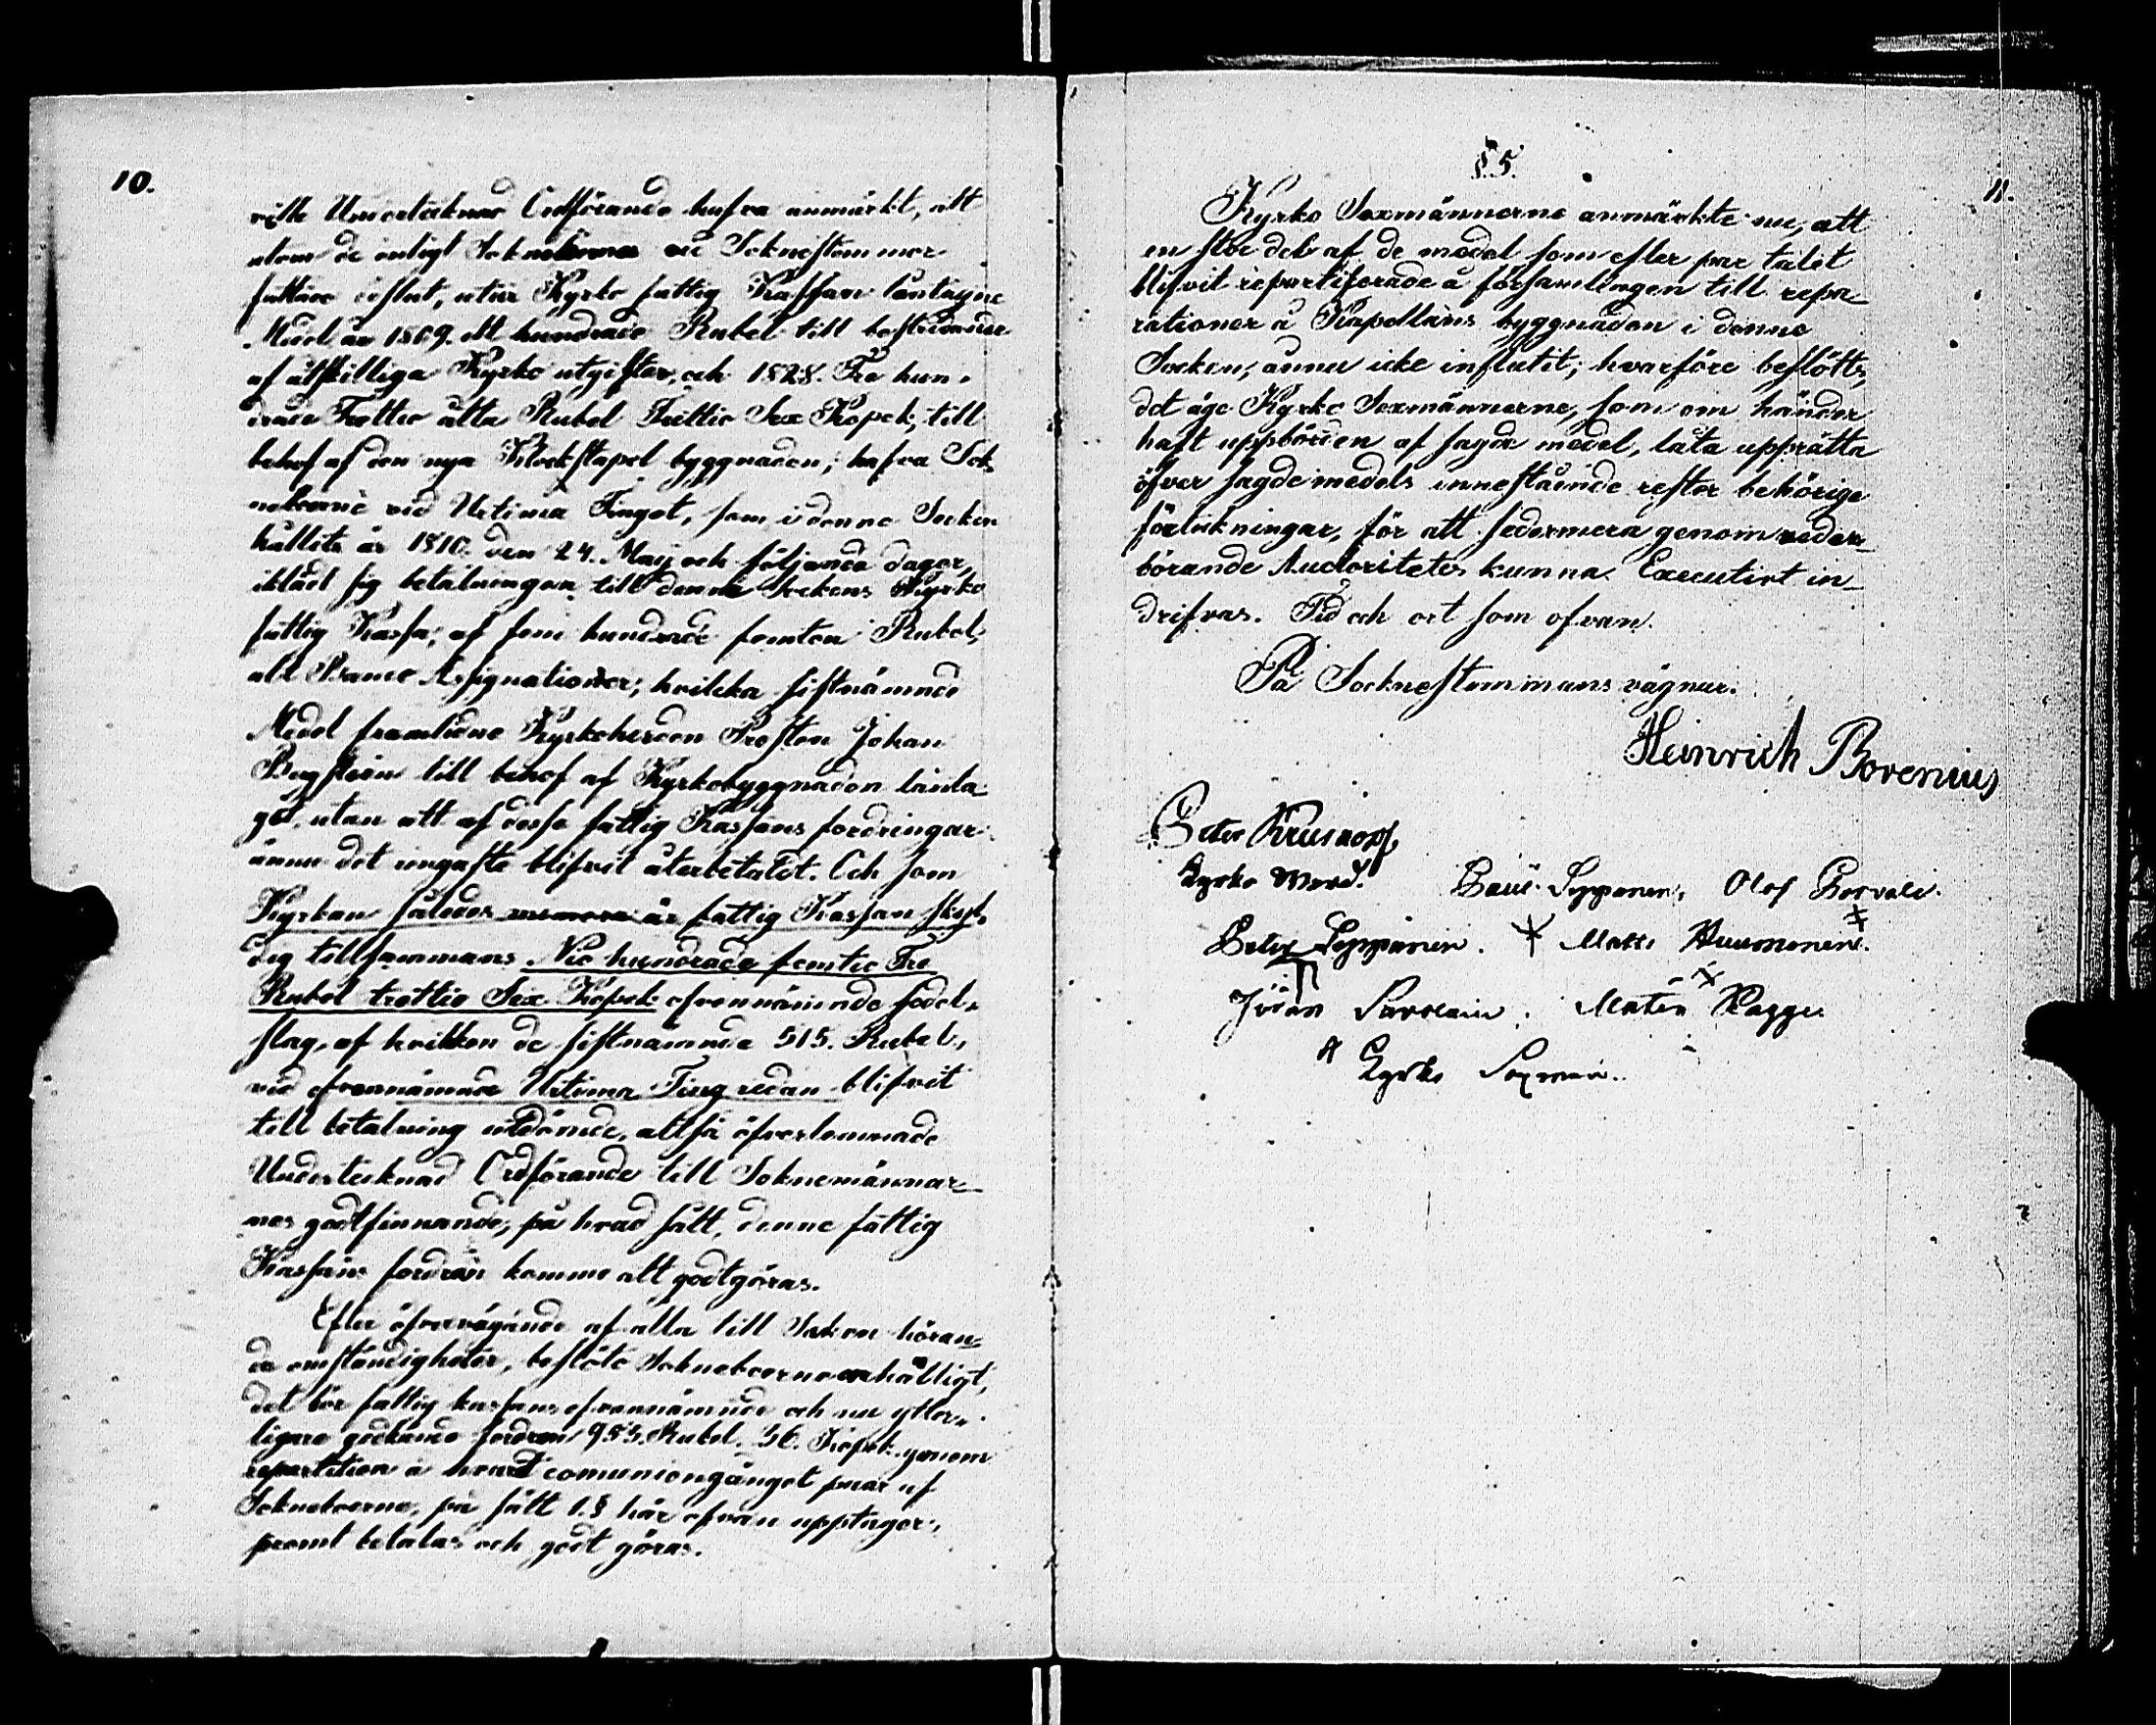 10.
Undertecknad Ordförande hafva anmärkt, att
utom de enligt Socknestämmor
fattade beslut, utur Kyrko fattig Kassan låntagne
Medel år 1809. Ett hundrade Rubel till bestridande
af åtskilliga Kyrko utgifter, och 1828. Tre hun-
drade Trettio åtta Rubel Trettio Sex Kopek, till
behof af den nya Klockstapel byggnaden; hafva Sok-
neboerne vid Urtima Tinget, som i denne Socken
hållits år 1810. den 24. Maij och följande dagar,
iklädt sig betalningen till denne Sockens Kyrko
fattig Kassa, af fem hundrade femton Rubel,
allt Banco Assignationer; hvilka sistnämnde
Medel framlidne Kyrkoherden Prosten Johan
till behof af Kyrkobyggnaden länta-
git, utan att af desse fattig Kassans fordringar
ännu det ringaste blifvit återbetaldt. Och som
Kyrkan således är fattig Kassan skyl-
dig tillsammans Nio hundrade femtio Tre
Rubel trettio Sex Kopek ofvannämnde sedel-
slag, af hvilken de sistnämnde 515. Rubel,
vid ofvannämnde Urtima Ting redan blifvit
till betalning utdömde, altså öfverlemnade
Undertecknad Ordförande till Soknemännar-
nes godtfinnande, på hvad sätt, denne fattig
Kassans fordran komme att godtgöras.
Efter öfvervägande af alla till Saken höran-
de omständigheter, beslöto Sokneboerne enhälligt,
det bör fattig kassans ofvannämnde och nu ytter-
ligare godkände fordran 953. Rubel. 36. Kopek. genom
repartition å hvart comuniongånget par af
Sokneboerne, på sätt 1.§ här ofvan upptager,
promt betalas och godt göras.
§.5.
11.
Kyrko Sexmännerne anmärkte nu, att
en stor del af de medel som efter par talet
blifvit repartiserade å församlingen till repa-
rationer å Kapellans byggnaden i denne
Socken, ännu icke influtit; hvarföre beslöts,
det äge Kyrko Sexmännerne, som om händer
haft uppbörden af sagde medel, låta upprätta
öfver sagde medels innestående rester behörige
förteckningar, för att sedermera genom veder-
börande Auctoriteter kunna Executivt in-
drifvas. Tid och ort som ofvan.
På Socknestemmans vägnar.
Heinrich Borenius
Peter Krusnopf
Kyrko Wärd. Paul Seppenen, Olof
Peter Seppänin. Matts Huumonen.
Jöran Matts
Kyrko Sexmän.